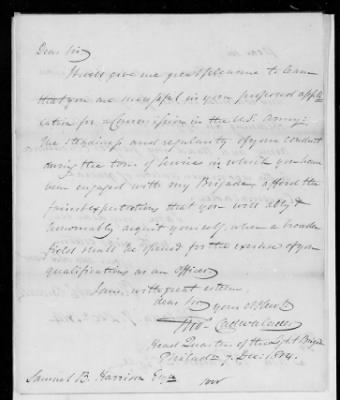 Dear Sir
It will give me great pleasure to learn
that you are successful in your proposed appli-
cation for a Commission in the U.S. Army.
The steadiness and regularity of your conduct
during the tour of service in which you have
been engaged with my Brigade, afford the
fairest expectation that you will ably &
honorably acquit yourself, when a broader
field shall be opened for the exercise of your
qualifications as an officer
I am, with great esteem
dear Sir your
Tho. Cadwalader
Head Quarters of the Light Brigade
Philada 7. Dec: 1814.
Samuel B. Harrison Esqr